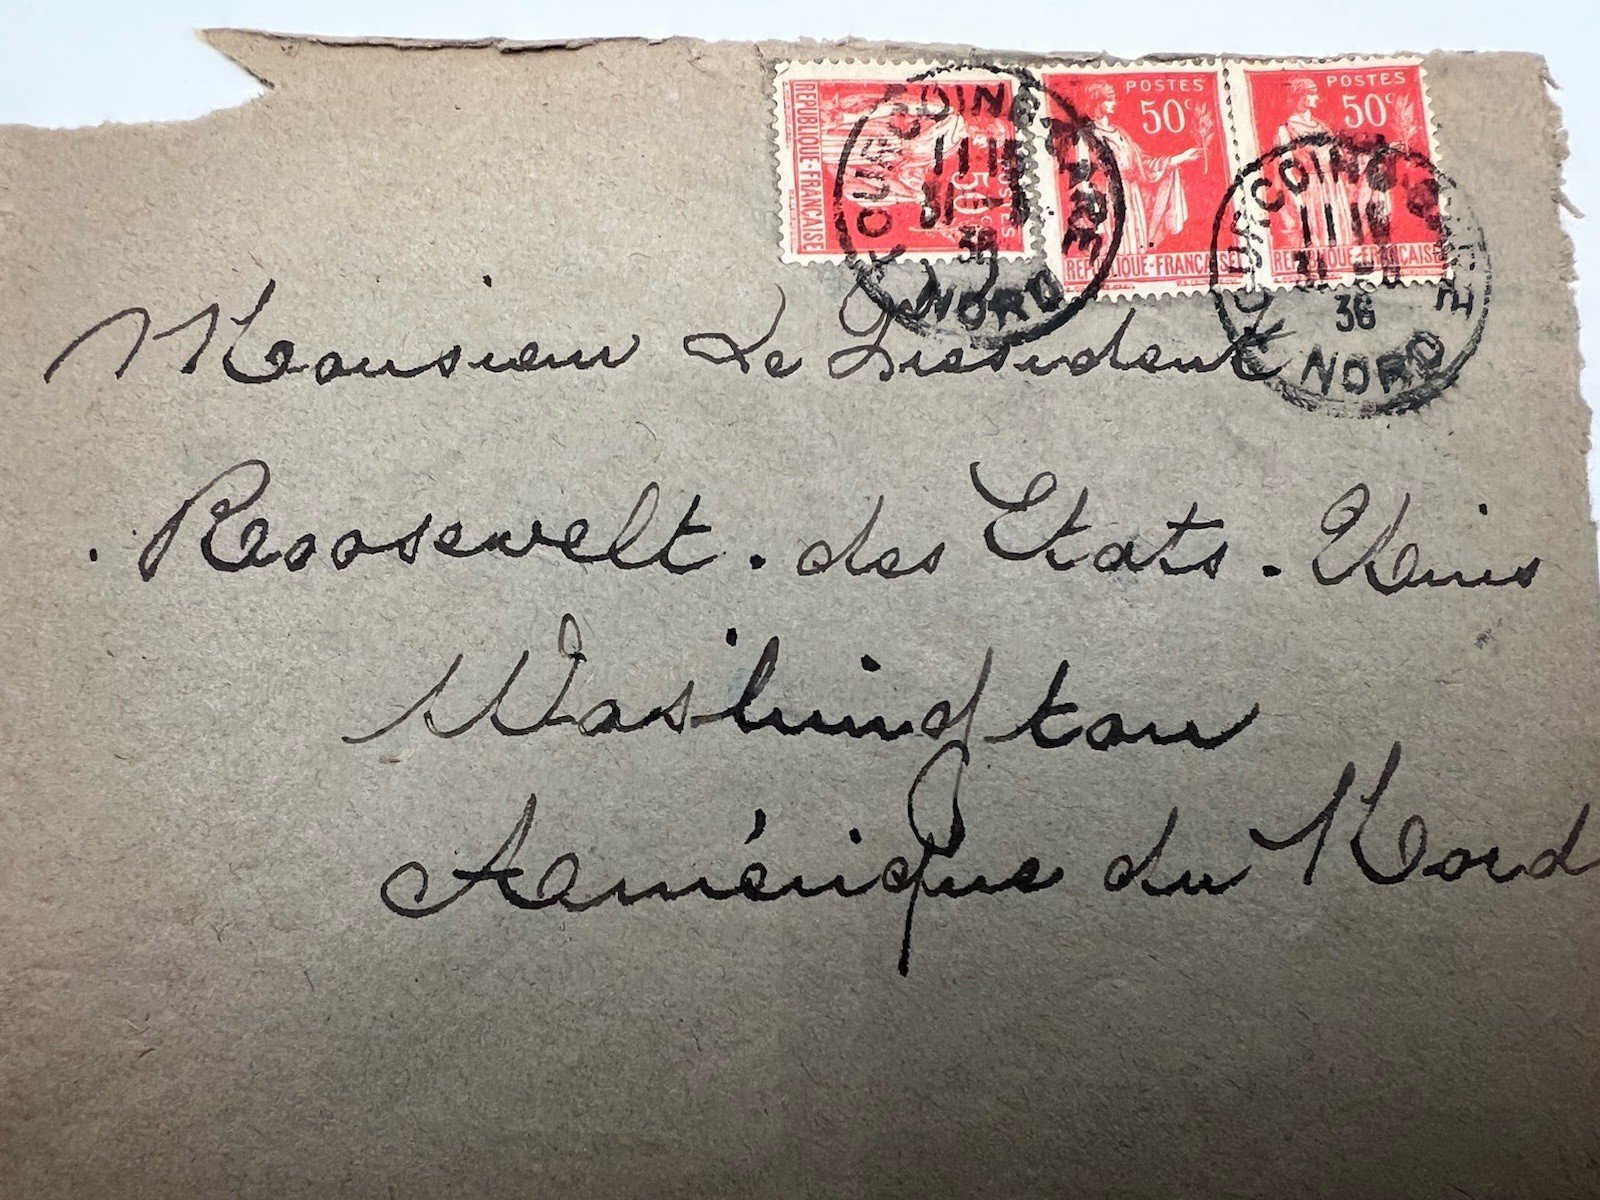 REPUBLIQUE-FRANÇAISE
50c
POSTES
POSTES
50c
REPUBLIQUE-FRANÇAISE
POSTES
50c
REPUBLIQUE-FRANÇAISE
TOURCOING
NORD
TOURCOING
11 15
36
NORD
Monsieur Le President
. Roosevelt . des Etats . Unis
Washington
Amérique du Nord